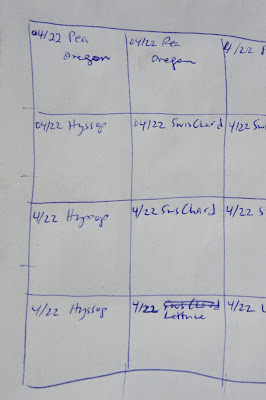 04/22 Pea
Oregon
04/22 Pea
Oregon
4/22 P
04/22 Hyssop
04/22 SwisChard
4/22 Swi
4/22 Hyssop
4/22 SwsChard
4/22 S
4/22 Hyssop
4/22 SwsChard
Lettuce
4/22 L